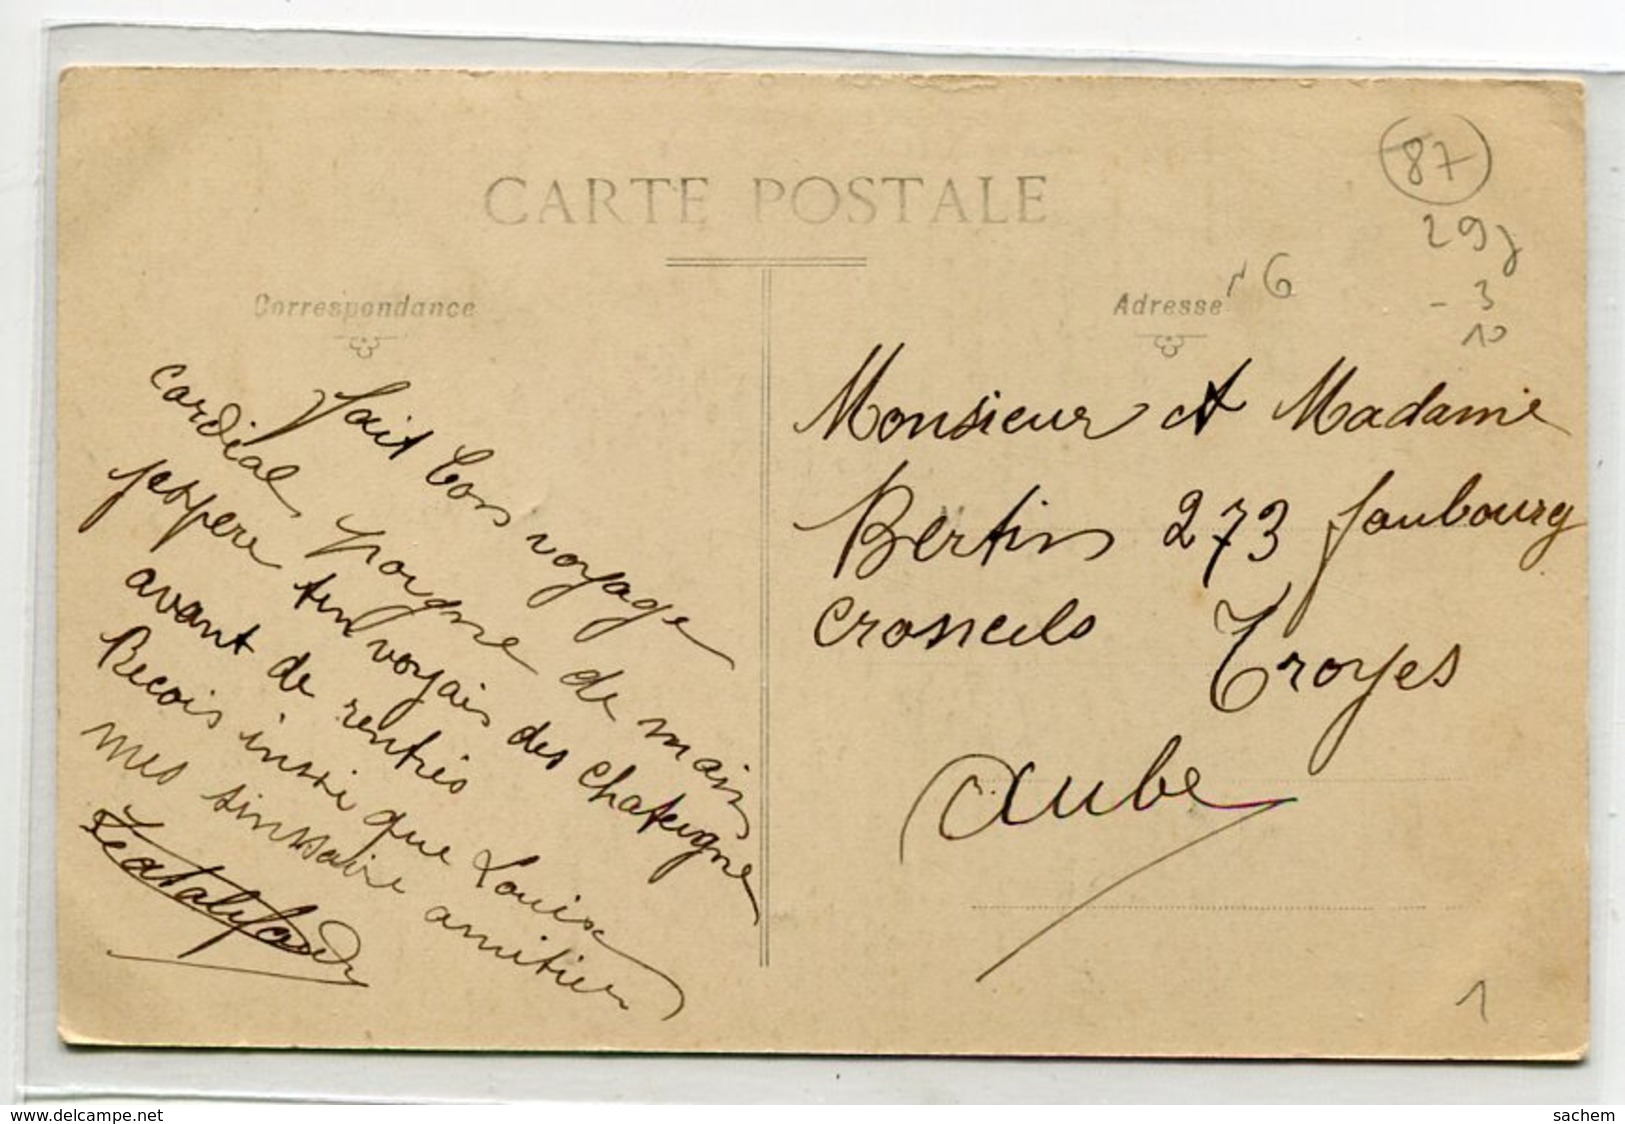 CARTE POSTALE
Correspondance
Adresse
87
29
N 6
- 3
10
fait bon voyage
cordial pougne de main
jespere ten voyais des chateigne
avant de rentrés
Recois inssi que Louise
mes sinssaire amitier
Monsieur et Madame
Bertin 273 faubourg
croncels Troyes
Aube
1
www.delcampe.net
sachem